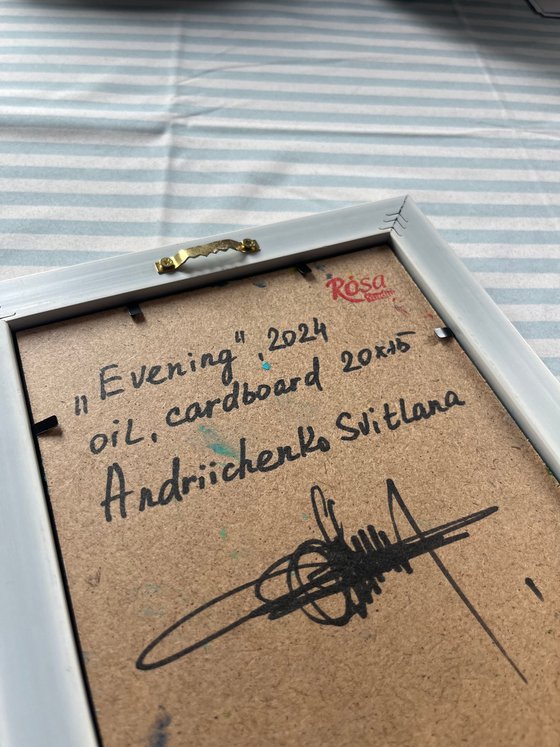 Rosa
„Evening", 2024
oil, cardboard 20x15
Andriichenko Svitlana